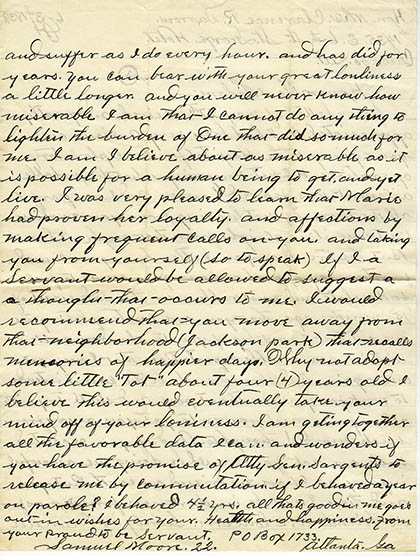 and suffer as I do every hour. and has did for
years. you can bear with your great lonliness
a little longer. and you will never know how
miserable I am that I cannot do any thing to
lighten the burden of One that did so much for
me. I am I believe about as miserable as it
is possible for a human being to get, and yet
live. I was very pleased to learn that Marie
had proven her loyalty. and affections by
making frequent calls on you. and taking
you from yourself (so to speak) If I a
Servant would be allowed to suggest a
a thought that occurs to me. I would
recommend that you move away from
that neighborhood (Jackson park) that recalls
memories of happier days. Why not adopt
some little "Tot" about four (4) years old I
believe this would eventually take your
mind off of your loniness. I am geting together
all the favorable data I can and wonders if
you have the promise of Atty Gen. Sargents to
release me by commutation if I behaved a year
on parole? I behaved 4½ yrs. all thats good in me goes
out in wishes for your. Health and happiness. from
your proud to be Servant. P O Box 1733.
Samuel Moore. Atlanta. Ga